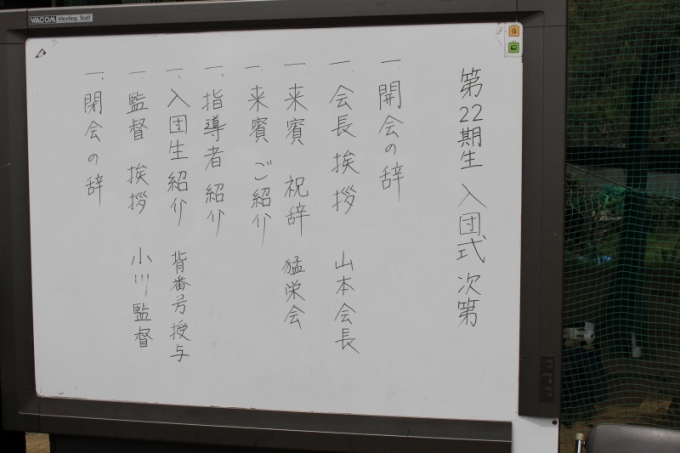 第22期生 入団式 次第
一 開会の辞
一 会長 挨拶 山本会長
一 来賓 祝辞 猛栄会
一 来賓 ご紹介
一 指導者 紹介
一. 入団生 紹介 背番号授与
一 監督 挨拶 小川監督
一. 閉会の辞
WACOM Meeting Staff